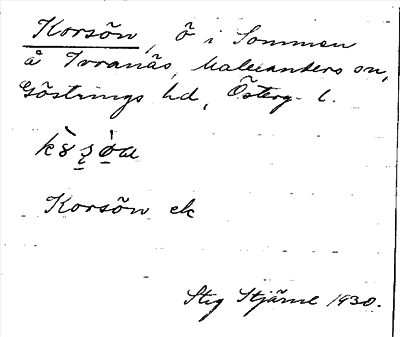 Korsön, ö i Sommen
å Tvranäs, Malexanders sn,
Göstrings hd, Österg. l.
Korsön ek
Stig Stjärne 1930.